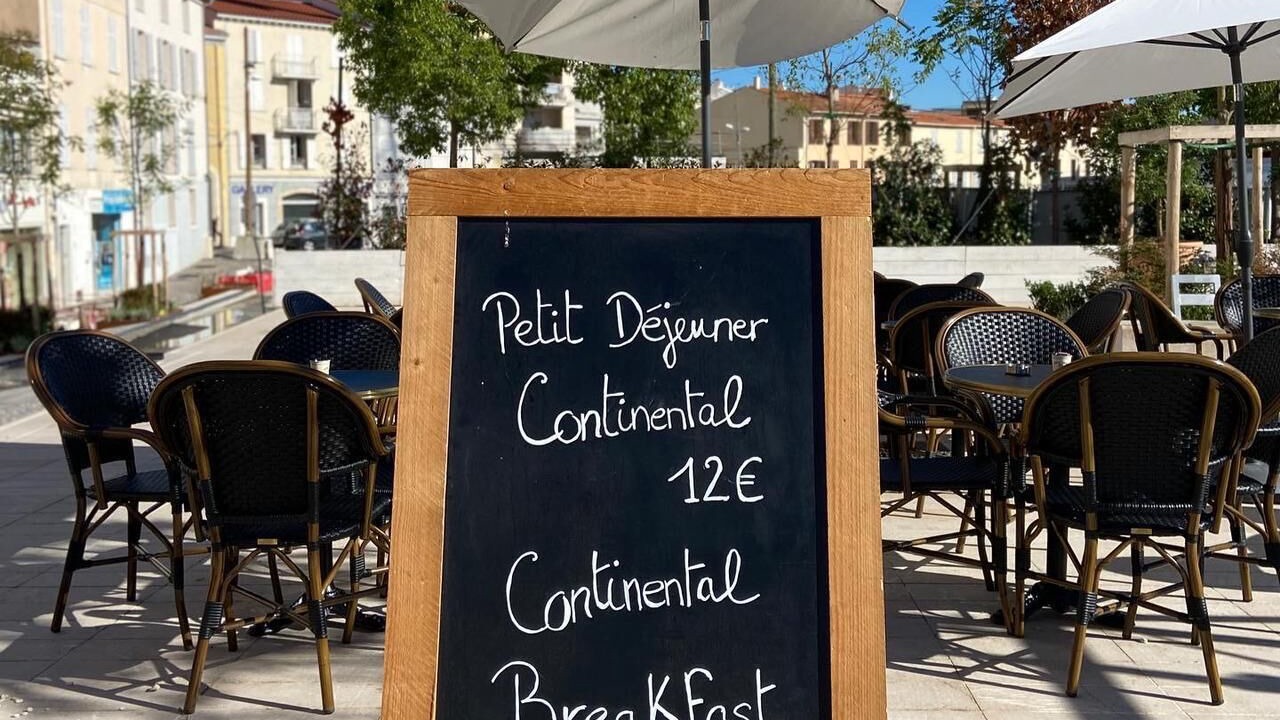 Petit Déjeuner
Continental
12€
Continental
BreaKFast
GALLERY